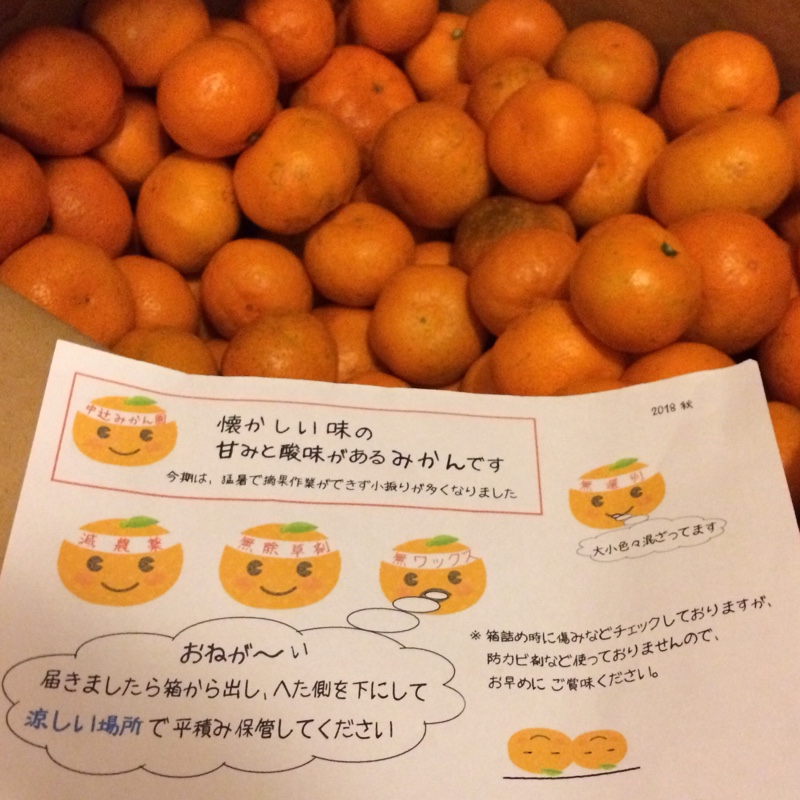 2018 秋
中辻みかん園
懐かしい味の
甘みと酸味があるみかんです
今期は、猛暑で摘果作業ができず小振りが多くなりました
無選別
大小色々混ざってます
減農薬
無除草剤
無ワックス
おねが〜い
届きましたら箱から出し、へた側を下にして
涼しい場所で平積み保管してください
※ 箱詰め時に傷みなどチェックしておりますが、
防カビ剤など使っておりませんので、
お早めに ご賞味ください。